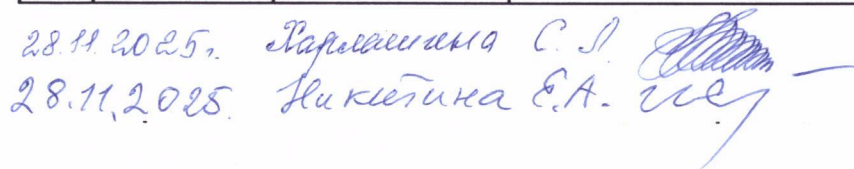 28.11.2025г. Харламина С. Л
28.11.2025. Никитина Е.А.